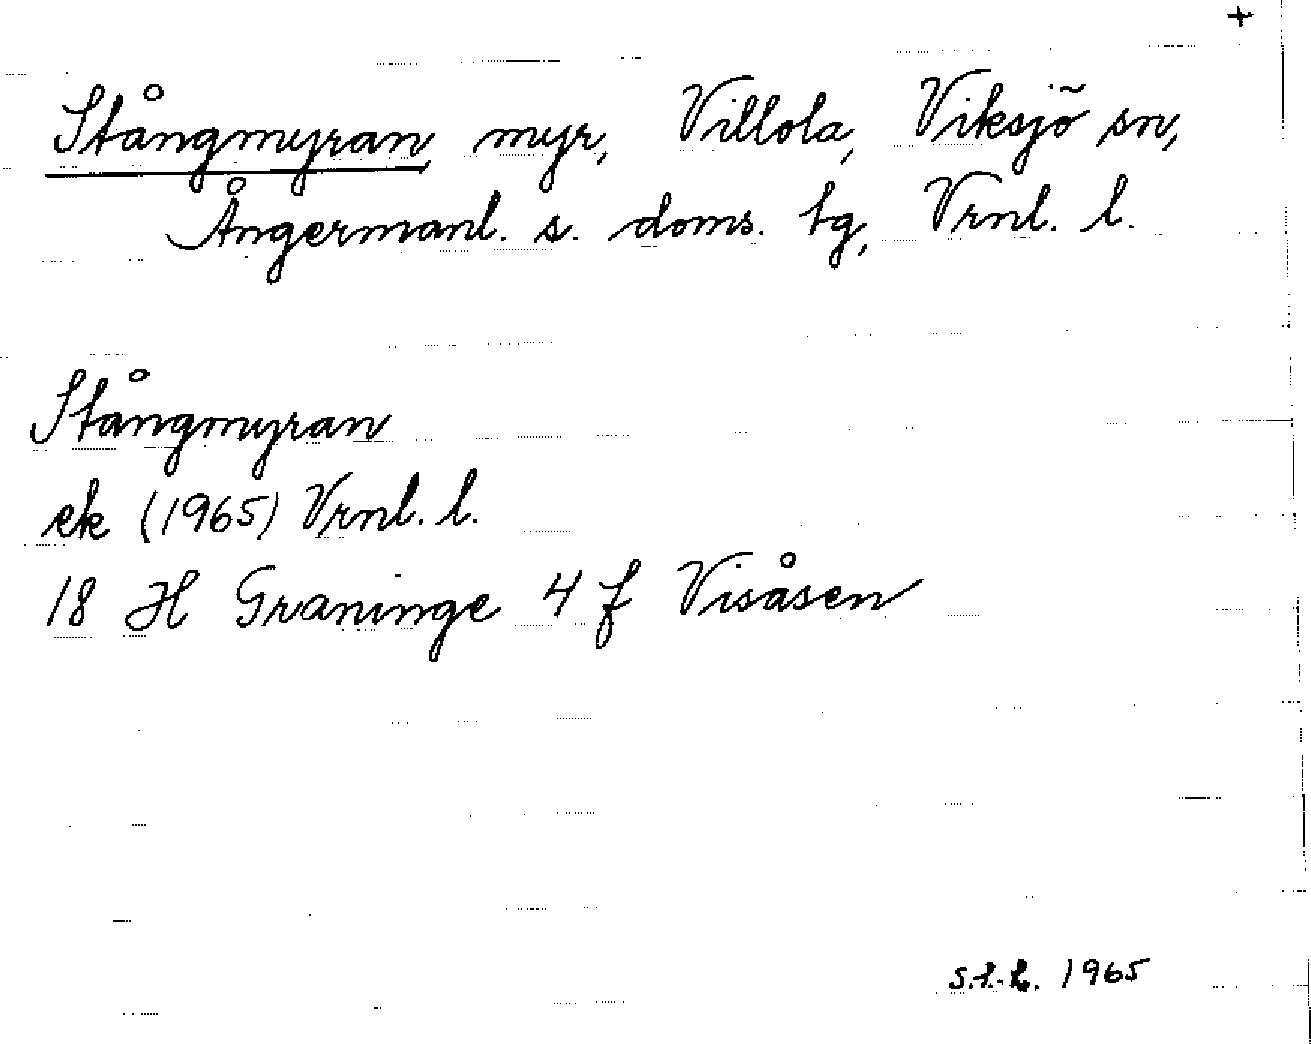 +
Stångmyran, myr, Villola, Viksjö sn,
Ångermanl. s. doms. tg, Vrnl. l.
Stångmyran
ek (1965) Vrnl. l.
18 H Graninge 4 f Visåsen
1965